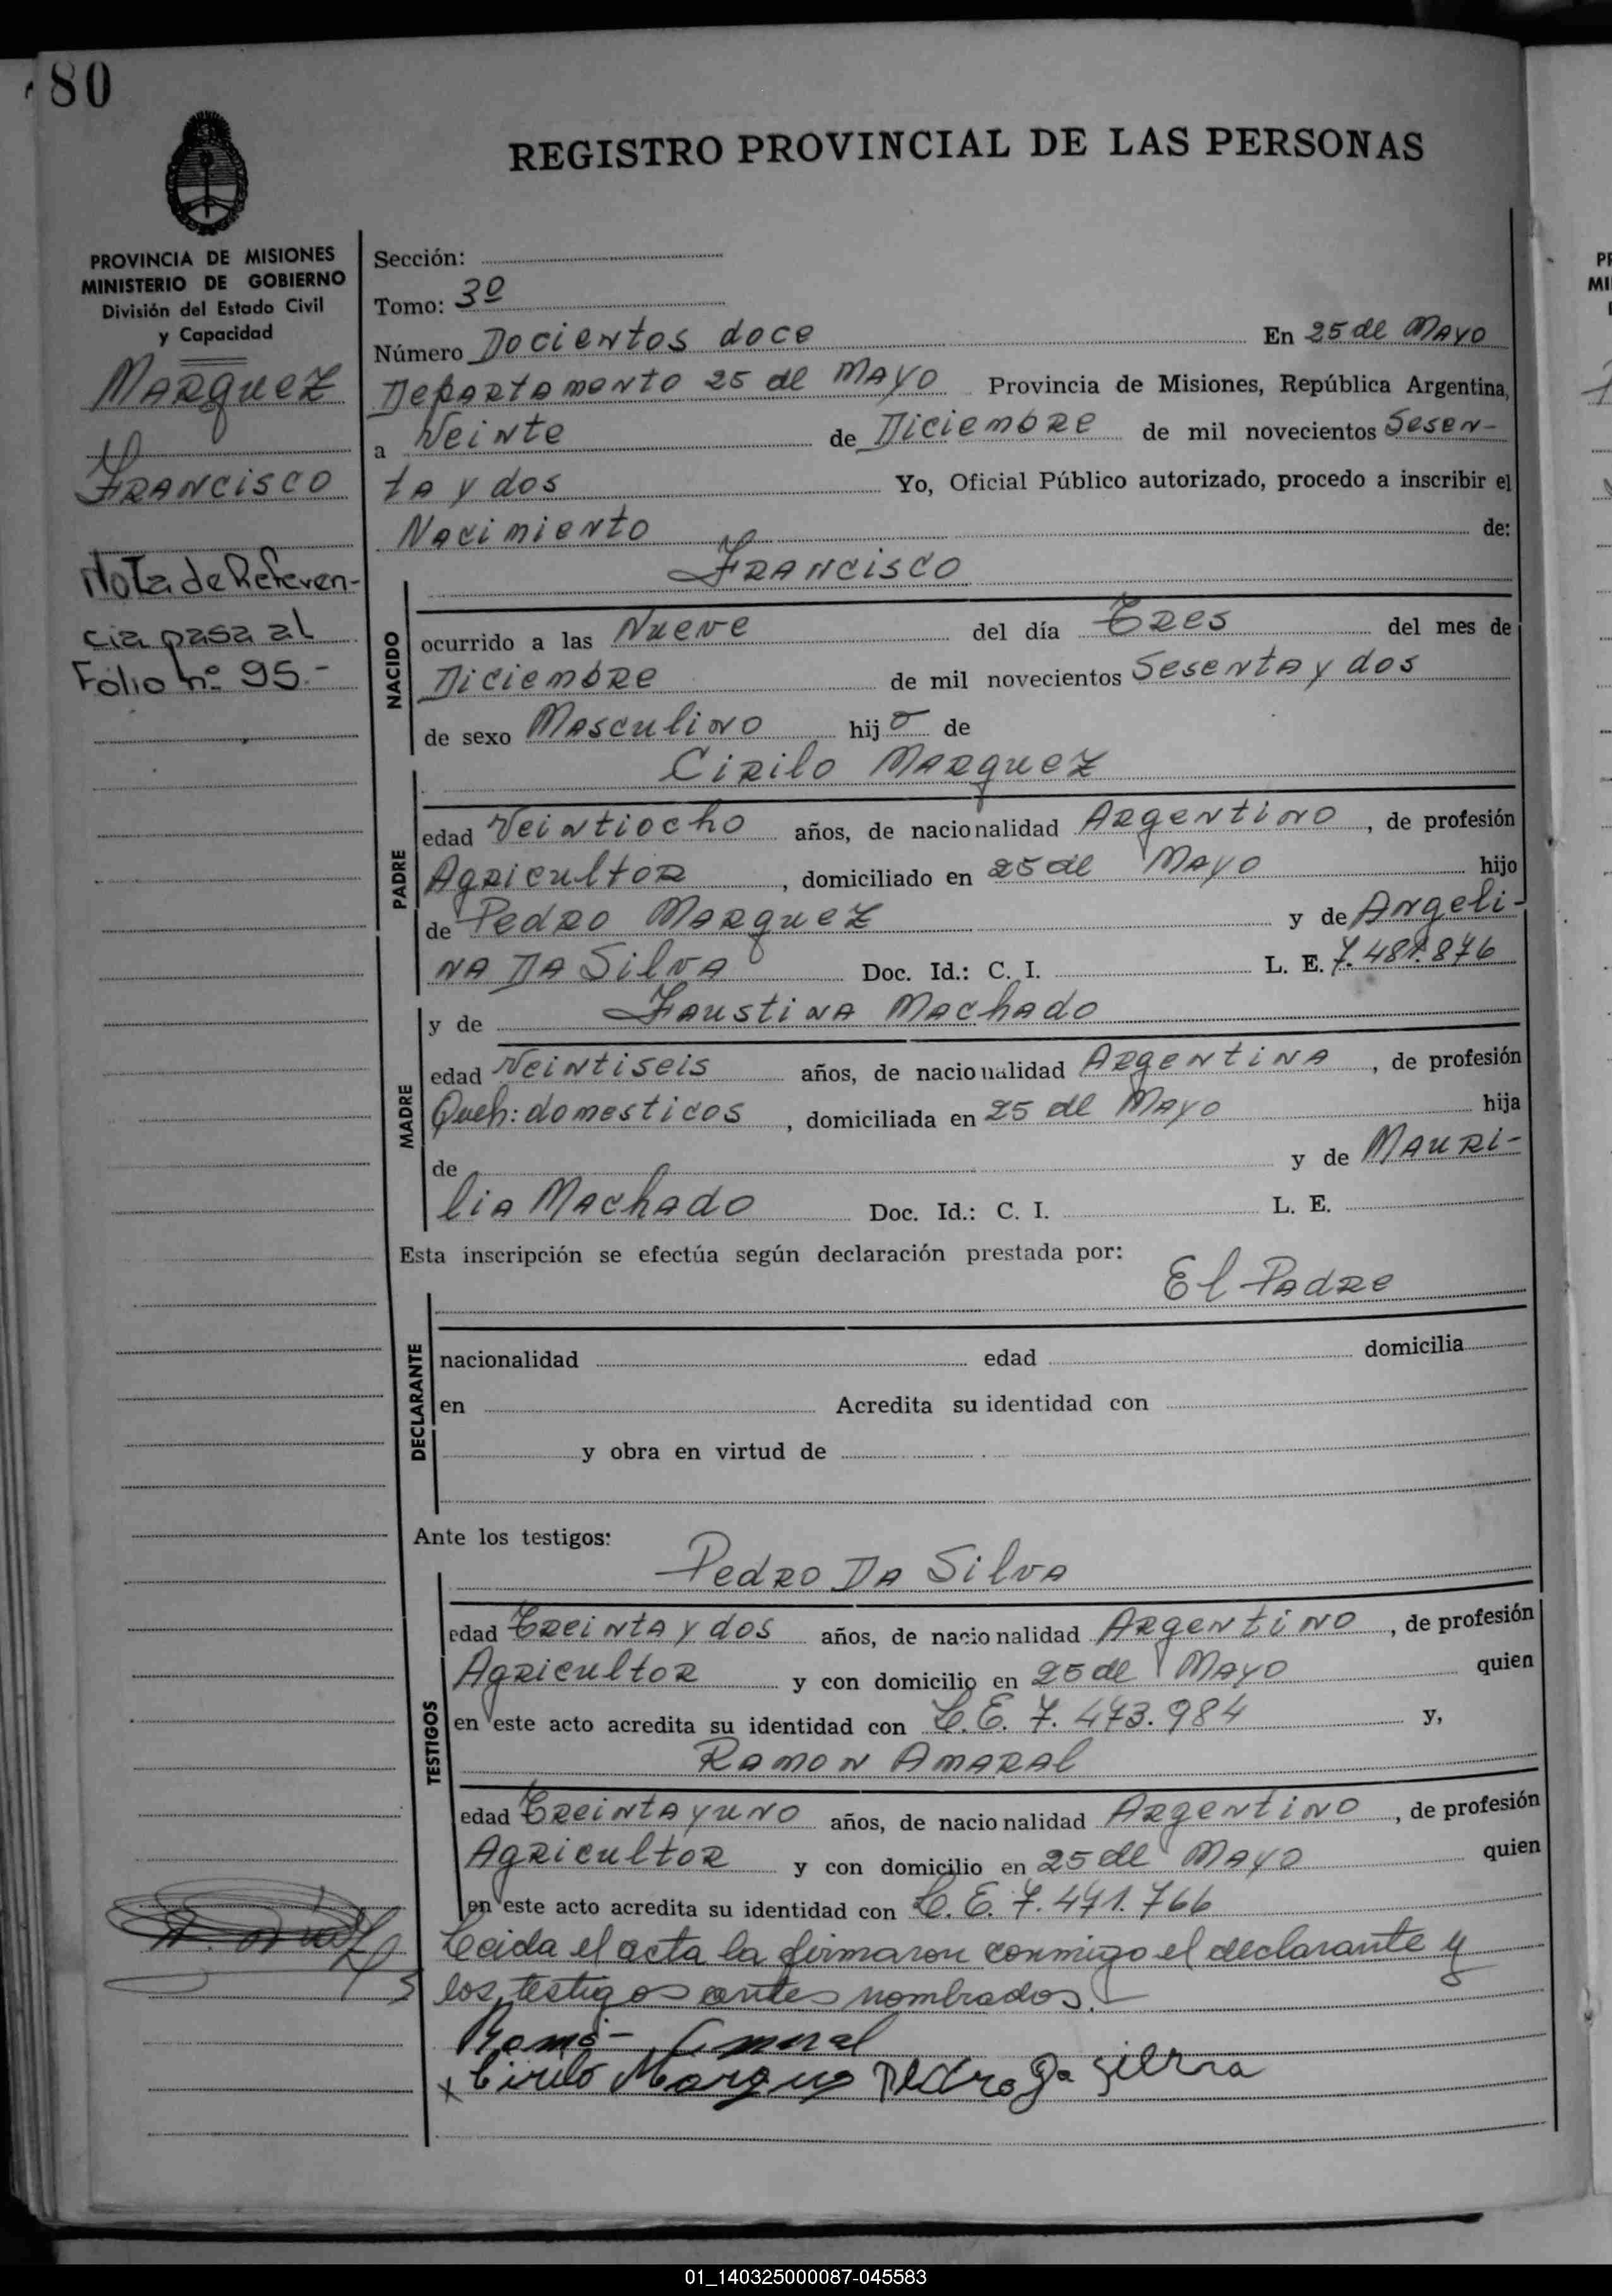 80
REGISTRO PROVINCIAL DE LAS PERSONAS
PROVINCIA DE MISIONES
MINISTERIO DE GOBIERNO
División del Estado Civil
y Capacidad
Marquez
Francisco
Nota de Referen-
cia pasa al
Folio nº 95.-
Sección:
Tomo: 3º
Número Docientos doce En 25 de Mayo
Departamento 25 de Mayo Provincia de Misiones, República Argentina,
a Veinte de Diciembre de mil novecientos Sesen-
ta y dos Yo, Oficial Público autorizado, procedo a inscribir el
Nacimiento de:
Francisco
NACIDO
ocurrido a las Nueve del día Tres del mes de
Diciembre de mil novecientos Sesenta y dos
de sexo Masculino hijo de
Cirilo Marquez
PADRE
edad Veintiocho años, de nacionalidad Argentino, de profesión
Agricultor, domiciliado en 25 de Mayo hijo
de Pedro Marquez y de Angeli-
na Da Silva Doc. Id.: C. I. L. E. 7.481.876
MADRE
y de Faustina Machado
edad Veintiseis años, de nacionalidad Argentina, de profesión
Queh: domesticos, domiciliada en 25 de Mayo hija
de y de Mauri-
lia Machado Doc. Id.: C. I. L. E.
Esta inscripción se efectúa según declaración prestada por:
El Padre
DECLARANTE
nacionalidad edad domicilia
en Acredita su identidad con
y obra en virtud de
Ante los testigos:
Pedro Da Silva
TESTIGOS
edad Treinta y dos años, de nacionalidad Argentino, de profesión
Agricultor y con domicilio en 25 de Mayo quien
en este acto acredita su identidad con L.E. 7.473.984 y,
Ramon Amaral
edad Treinta y uno años, de nacionalidad Argentino, de profesión
Agricultor y con domicilio en 25 de Mayo quien
en este acto acredita su identidad con L.E. 7.471.766
Leida el acta la firmaron conmigo el declarante y
los testigos antes nombrados.
Ramo- Amaral
x Cirilo Marquez Pedro Da Silva
01_140325000087-045583